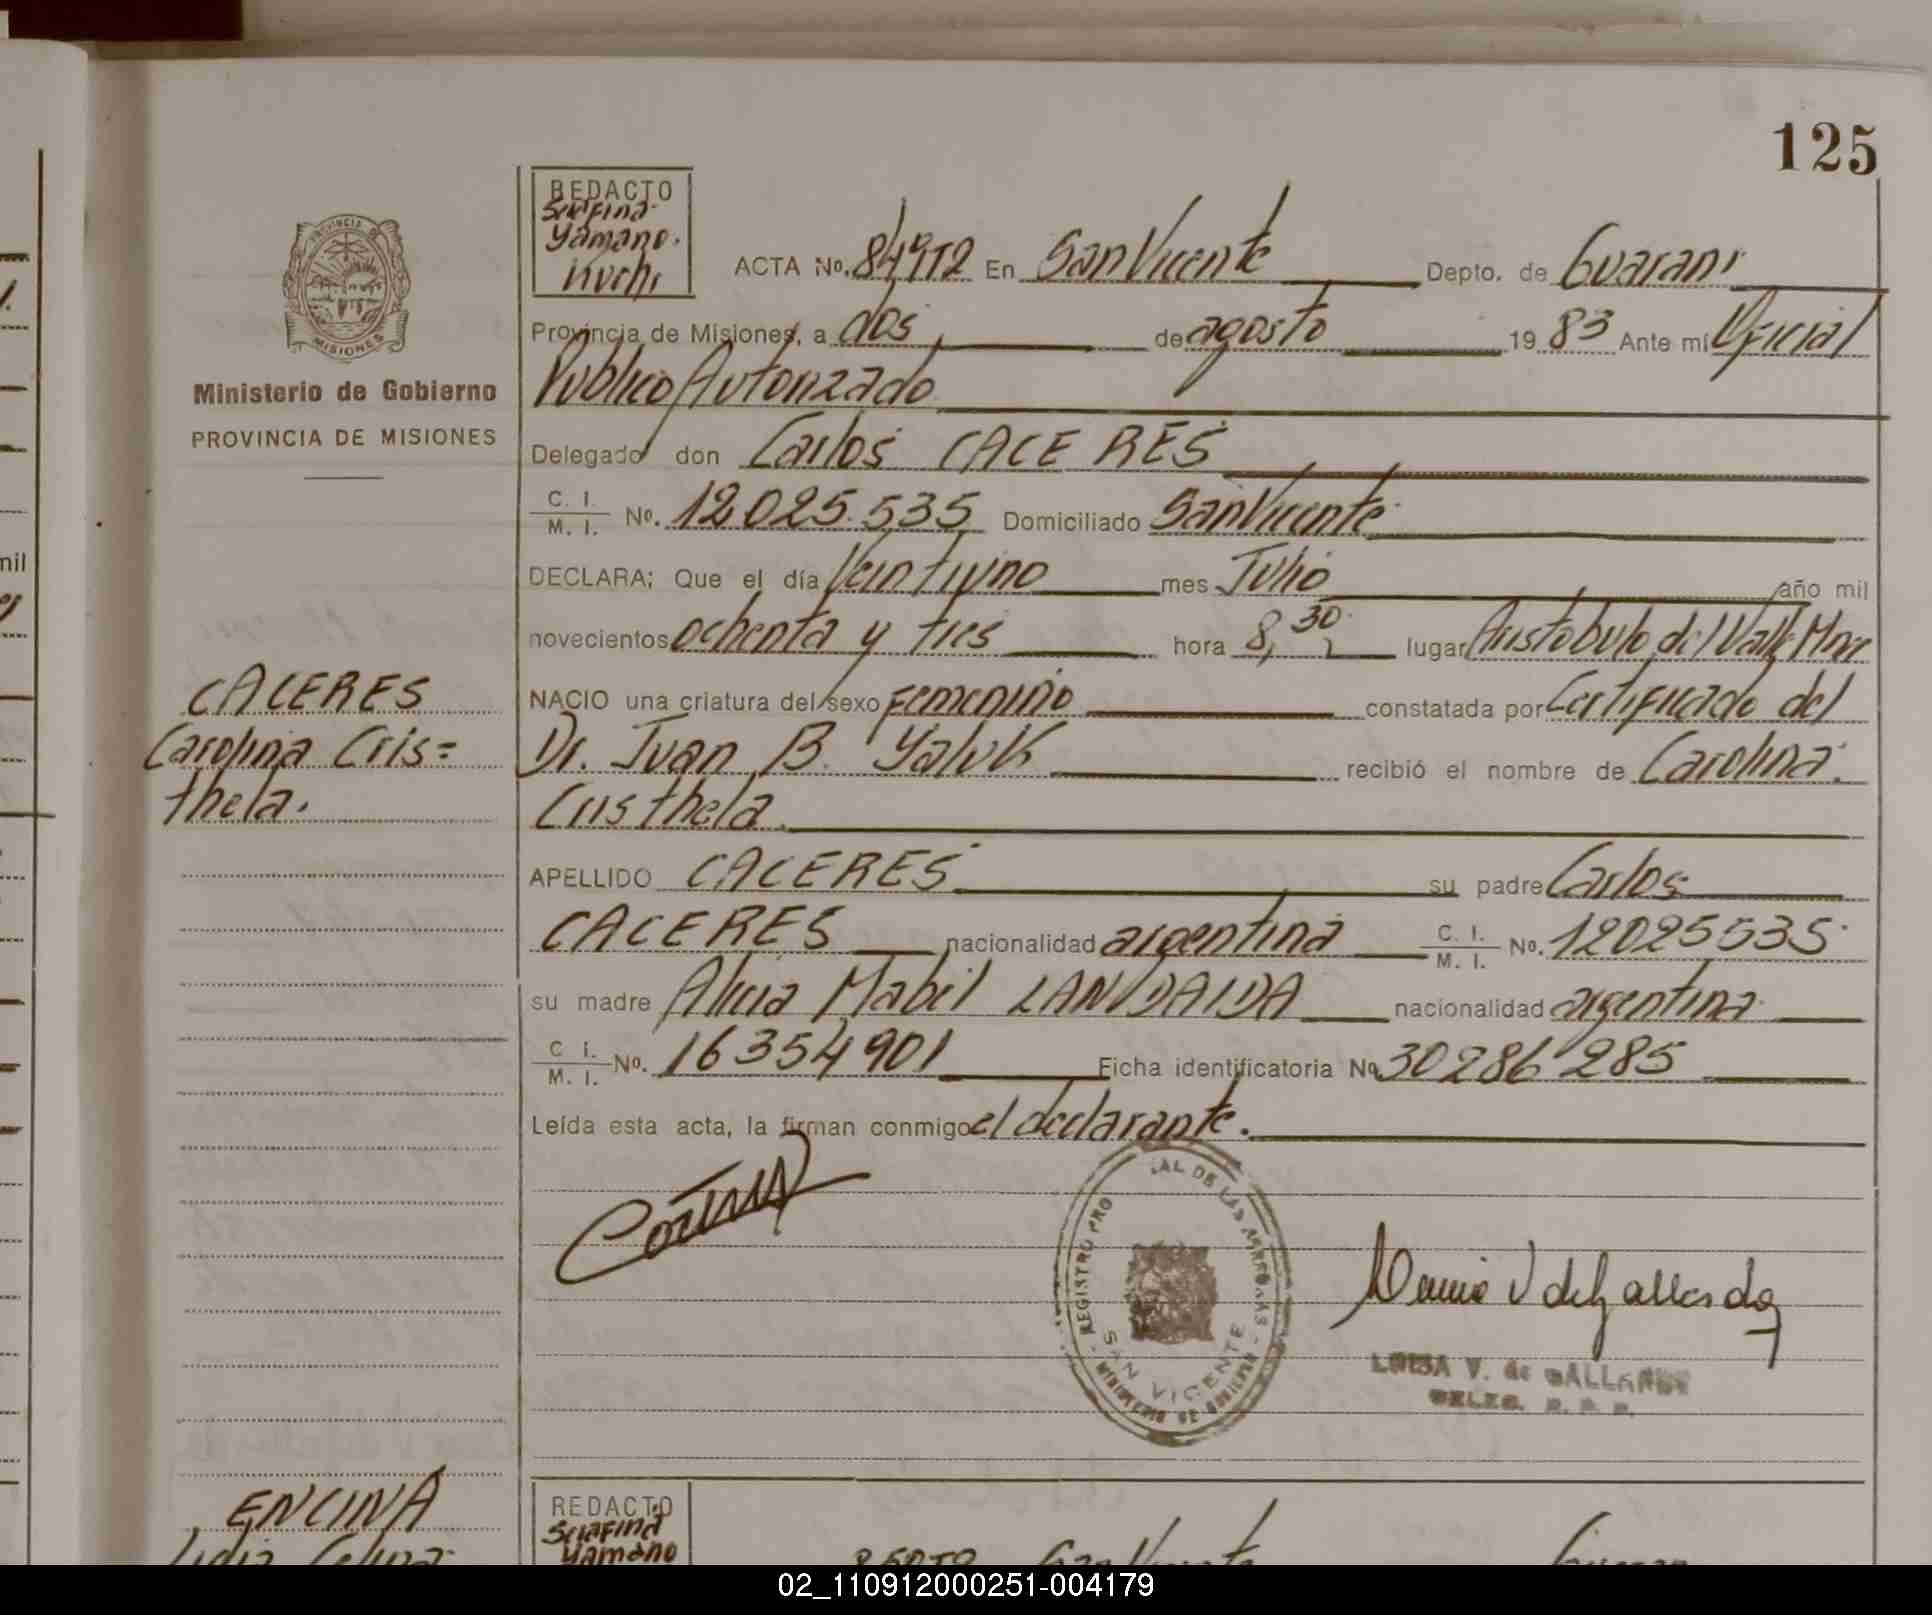 125
REDACTO
Serafina
Yamano.
Kuchi
ACTA No. 849T2 En San Vicente Depto. de Guarani
Provincia de Misiones, a dos de agosto 1983 Ante mí Oficial
Publico Autorizado
Delegado don Carlos CACERES
C. I.
M. I. No. 12.025.535 Domiciliado San Vicente
DECLARA: Que el día Veintiuno mes Julio año mil
novecientos ochenta y tres hora 8,30 lugar Aristobulo del Valle Mnes
NACIO una criatura del sexo femenino constatada por Certificado del
Dr. Juan B. Yaluk recibió el nombre de Carolina
Cristhela
APELLIDO CACERES su padre Carlos
CACERES nacionalidad argentina C. I.
M. I. No. 12025535
su madre Alicia Mabel LANDAIDA nacionalidad argentina
C I.
M. I. No. 16354901 Ficha identificatoria No 30286285
Leída esta acta, la firman conmigo el declarante.
PROVINCIA DE
MISIONES
Ministerio de Gobierno
PROVINCIA DE MISIONES
CACERES
Carolina Cris=
thela.
REGISTRO PRO IAL DE LAS PERSONAS
SAN VICENTE
MINISTERIO DE GOBIERNO
V de Gallardo
LUISA V. de GALLARDO
DELEG. R. P. P.
ENCINA
Lidia Celina
REDACTO
Serafina
Yamano
San Vicente
mil
02_110912000251-004179